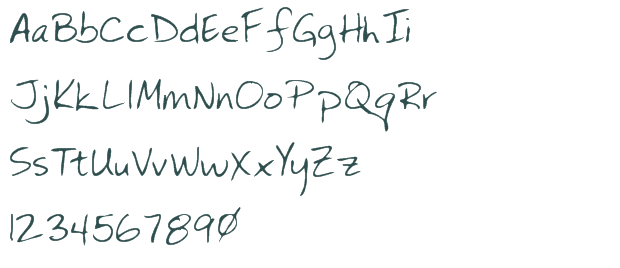 AaBbCcDdEeFfGgHhIi
JjKkLlMmNnOoPpQqRr
SsTtUuVvWwXxYyZz
1234567890